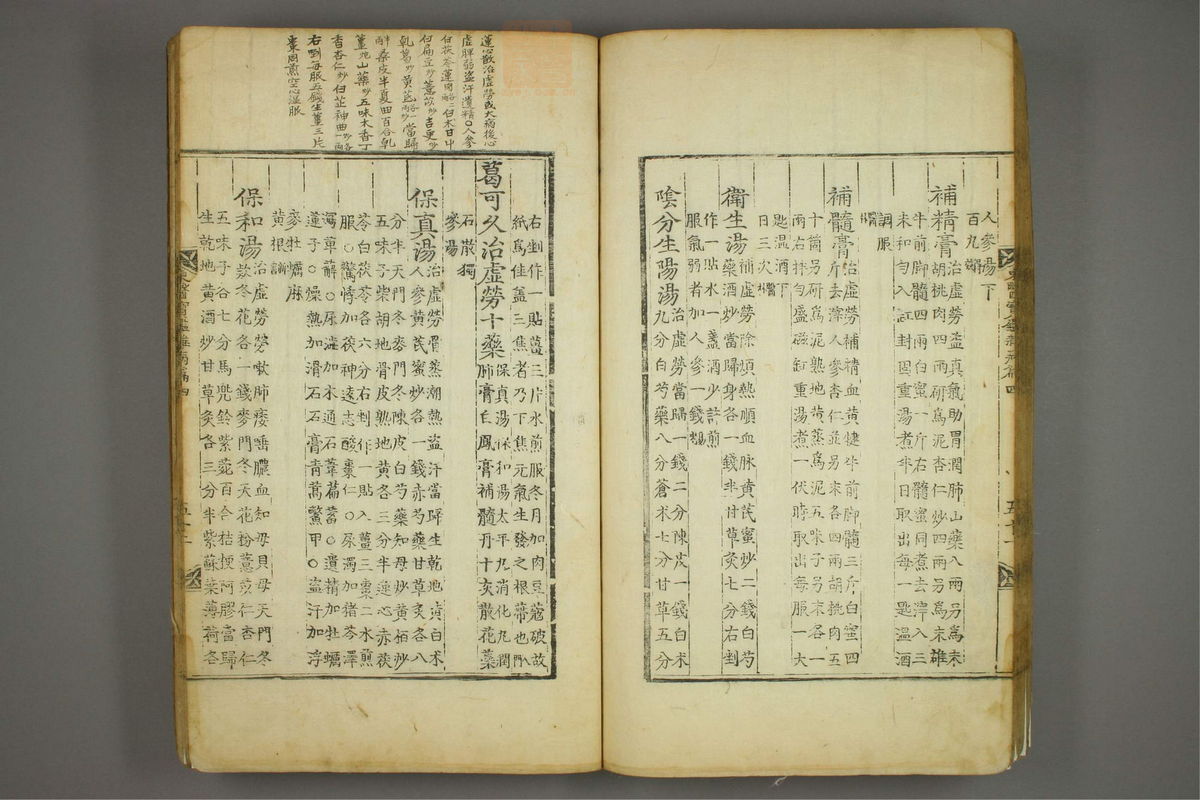 人參湯下
百九
補精膏治虛勞益真氣助胃潤肺山藥八兩另爲末
胡桃肉四兩研爲泥杏仁炒四兩另爲末雄
牛前脚髓四兩白蜜一斤右髓蜜同煮去滓入三
末和勻入缸封固重湯煮半日取出每一匙溫酒
調服
補髓膏治虛勞補精血黃犍牛前脚髓三斤白蜜四
斤去滓人參杏仁並另末各四兩胡桃肉五
十箇另研爲泥熟地黃蒸爲泥五味子另末各一
兩右抹勻盛磁缸重湯煮一伏時取出每服一大
匙溫酒下
日三次
衛生湯補虛勞除煩熱順血脉黃芪蜜炒二錢白芍
藥酒炒當歸身各一錢半甘草灸七分右剉
作一貼水一盞酒少許煎
服氣弱者加人參一錢
陰分生陽湯治虛勞當歸一錢二分陳皮一錢白朮
九分白芍藥八分蒼朮七分甘草五分
右剉作一貼薑三片水煎服冬月加肉豆蔻破故
紙爲佳盖三焦者乃下焦元氣生發之根蔕也
葛可久治虛勞十藥保真湯保和湯太平丸消化丸潤
肺膏白鳳膏補髓丹十灰散花蘂
石散獨
參湯
保真湯治虛勞骨蒸潮熱盜汗當歸生乾地黃白朮
人參黃芪蜜炒各一錢赤芍藥甘草灸各八
分半天門冬麥門冬陳皮白芍藥知母炒黃栢炒
五味子柴胡地骨皮熟地黃各三分半蓮心赤茯
苓白茯苓各六分右剉作一貼入薑三棗二水煎
服○驚悸加茯神遠志酸棗仁○尿濁加猪苓澤
瀉萆薢○尿澁加木通石葦萹蓄○遺精加牡蠣
蓮子○燥熱加滑石石膏青蒿鱉甲○盜汗加浮
麥牡蠣麻
黃根
保和湯治虛勞勞嗽肺痿唾膿血知母貝母天門冬
款冬花各一錢麥門冬天花粉薏苡仁杏仁
五味子各七分馬兜鈴紫菀百合桔梗阿膠當歸
生乾地黃酒炒甘草灸各三分半紫蘇葉薄荷各
蓮心散治虛勞或大病後心
虛脾弱盜汗遺精○人參
白茯苓蓮肉各二白朮甘草
白扁豆炒薏苡炒吉更炒
乾葛炒黃芪炒一當歸
桑皮半夏曲百合乾
薑炮山藥炒五味木香丁
香杏仁炒白芷神曲炒各一兩
右剉每服五錢生薑三片
棗同煎空心溫服